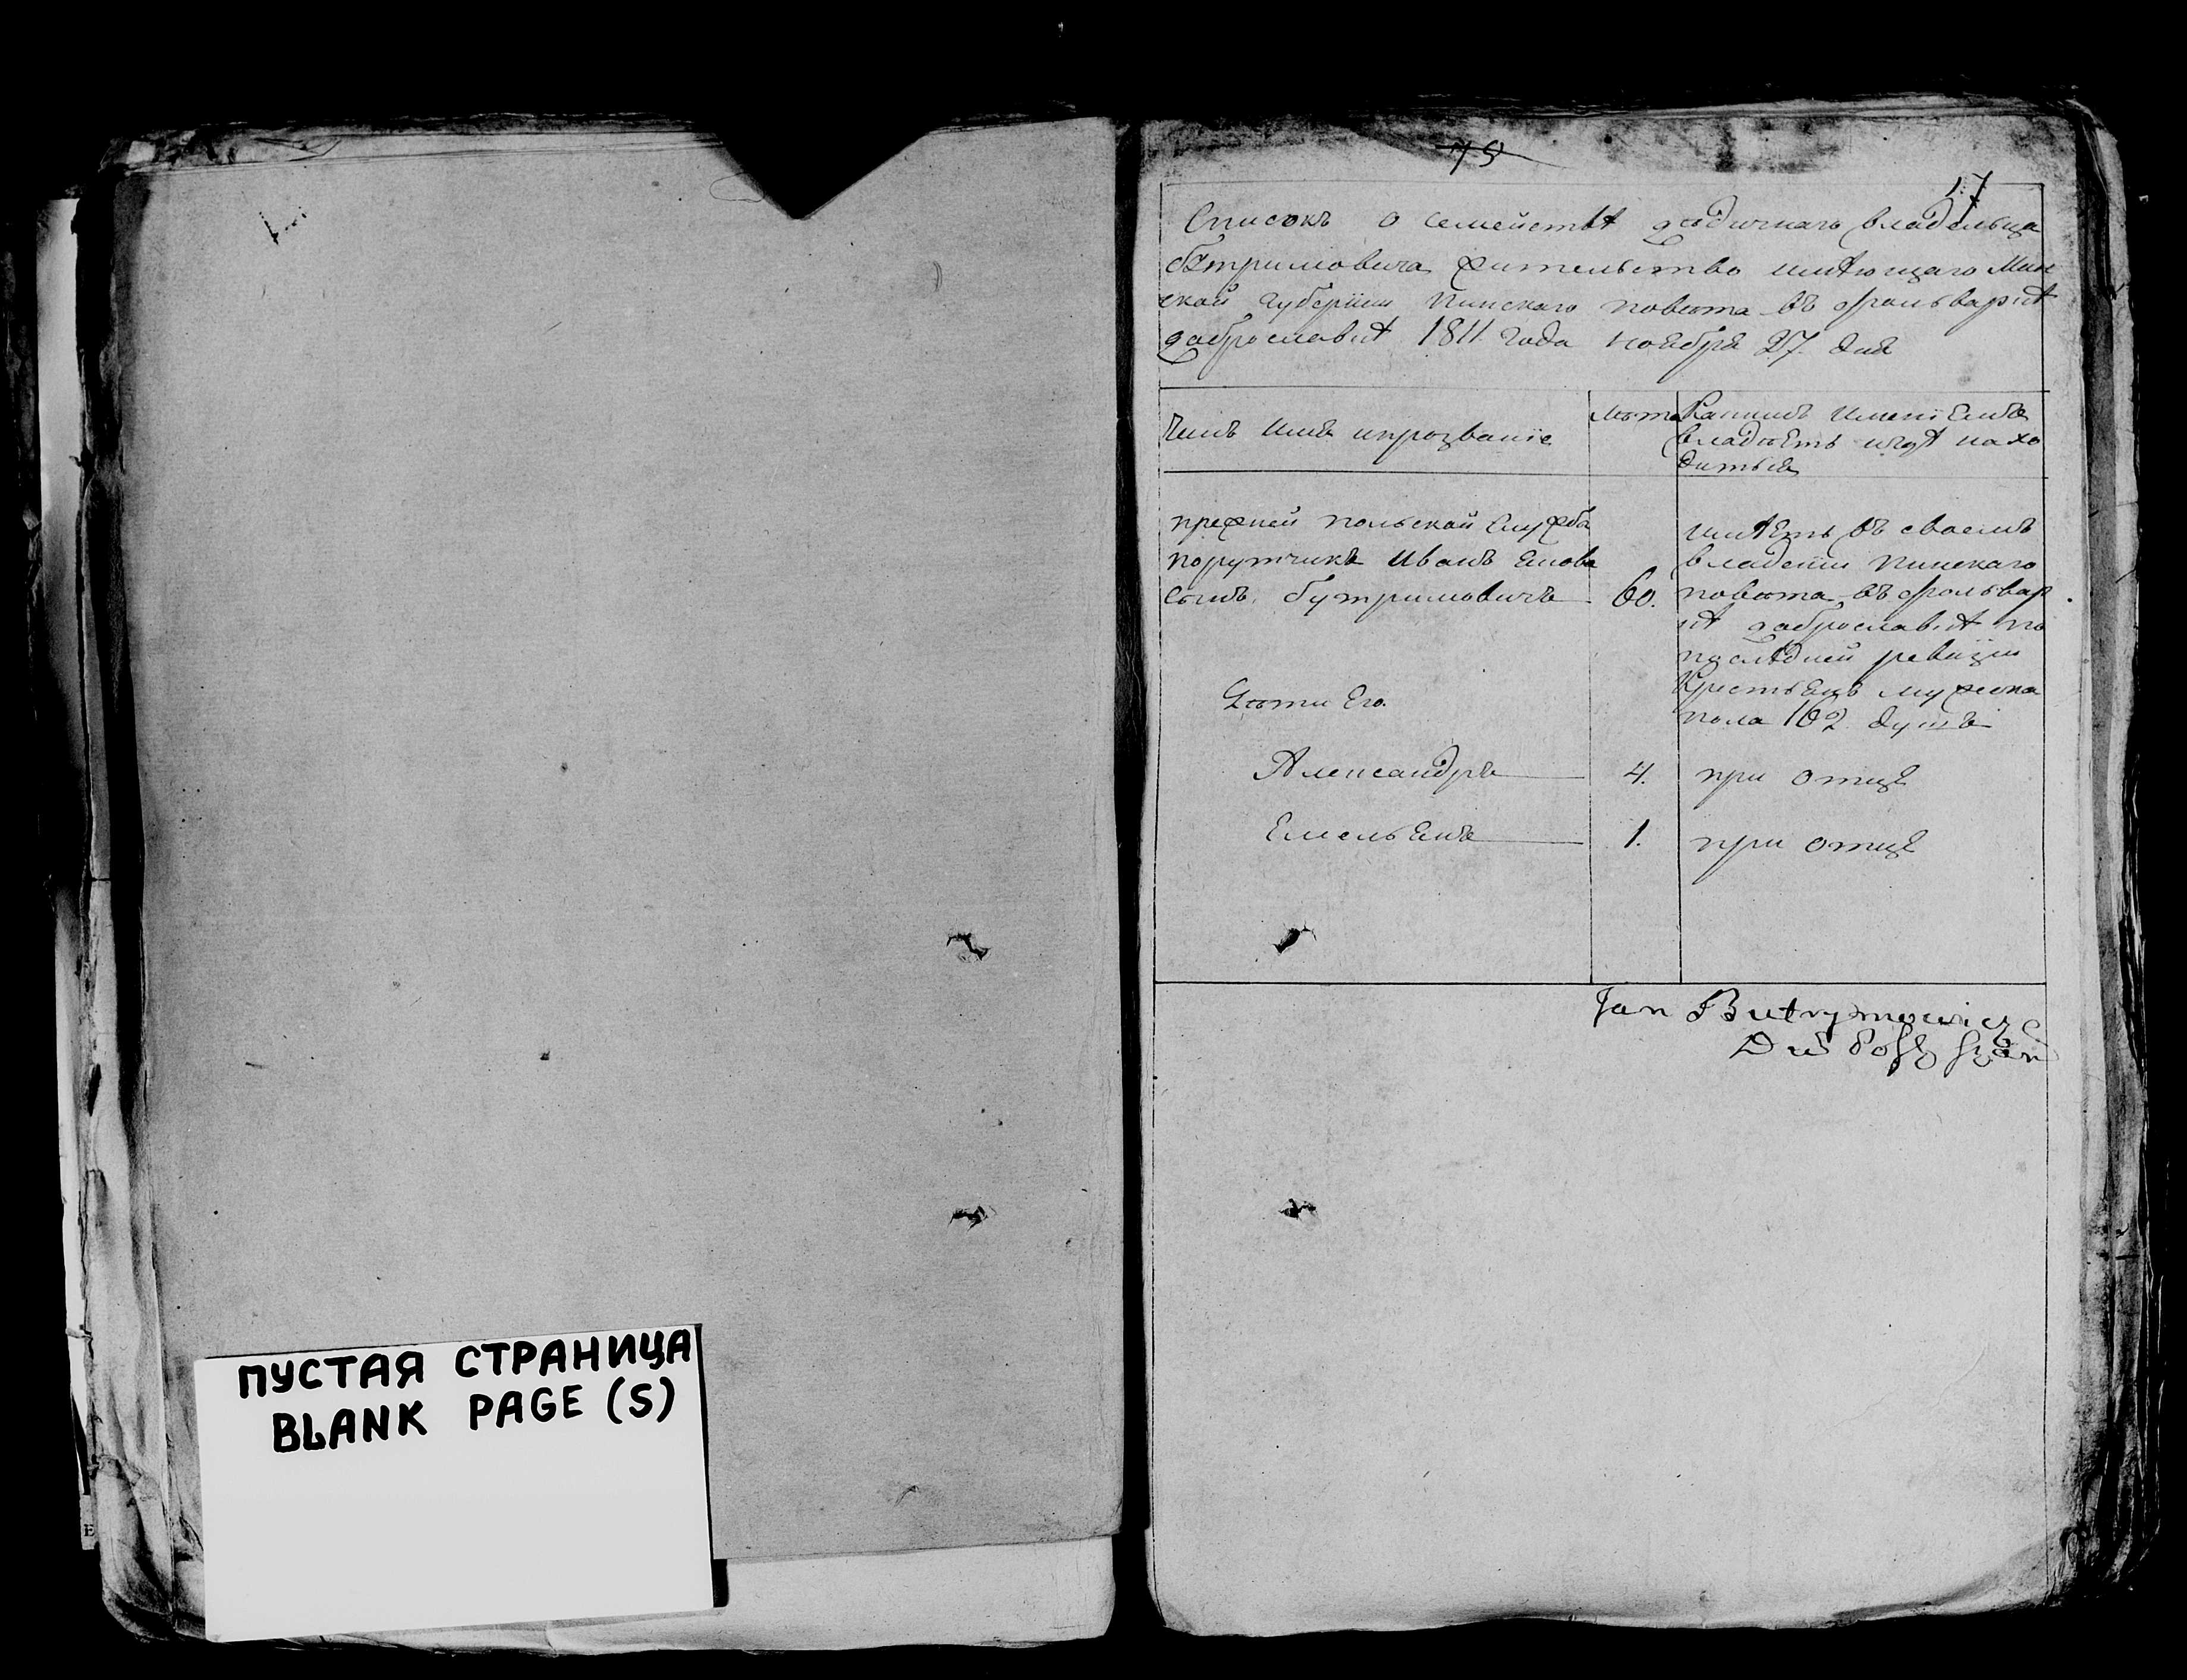 79
17
Списокъ о семействѣ дѣдичнаго владельца
бѫтримовича жительство имѣющаго Мин
ской губернїи пинскаго повѣта въ фольваркѣ
доброславкѣ 1811 года ноября 27. дня
Чинъ имя ипрозванїе
лѣта
Какимъ именїемъ
владѣетъ игдѣ нахо
дитьця
прежней польской службы
порутчикъ Иванъ
сынъ бутримовичъ 60.
имѣетъ въ своемъ
владенїи пинскаго
повѣта въ фольвар
кѣ доброславкѣ по
последней ревизїи
крестьянъ мужска
пола 162 душъ
Дѣти Его.
Александръ 4. при отцѣ
Емельянъ 1. при отцѣ
Jan Butrymowicz
ПУСТАЯ СТРАНИЦА
BLANK PAGE (S)